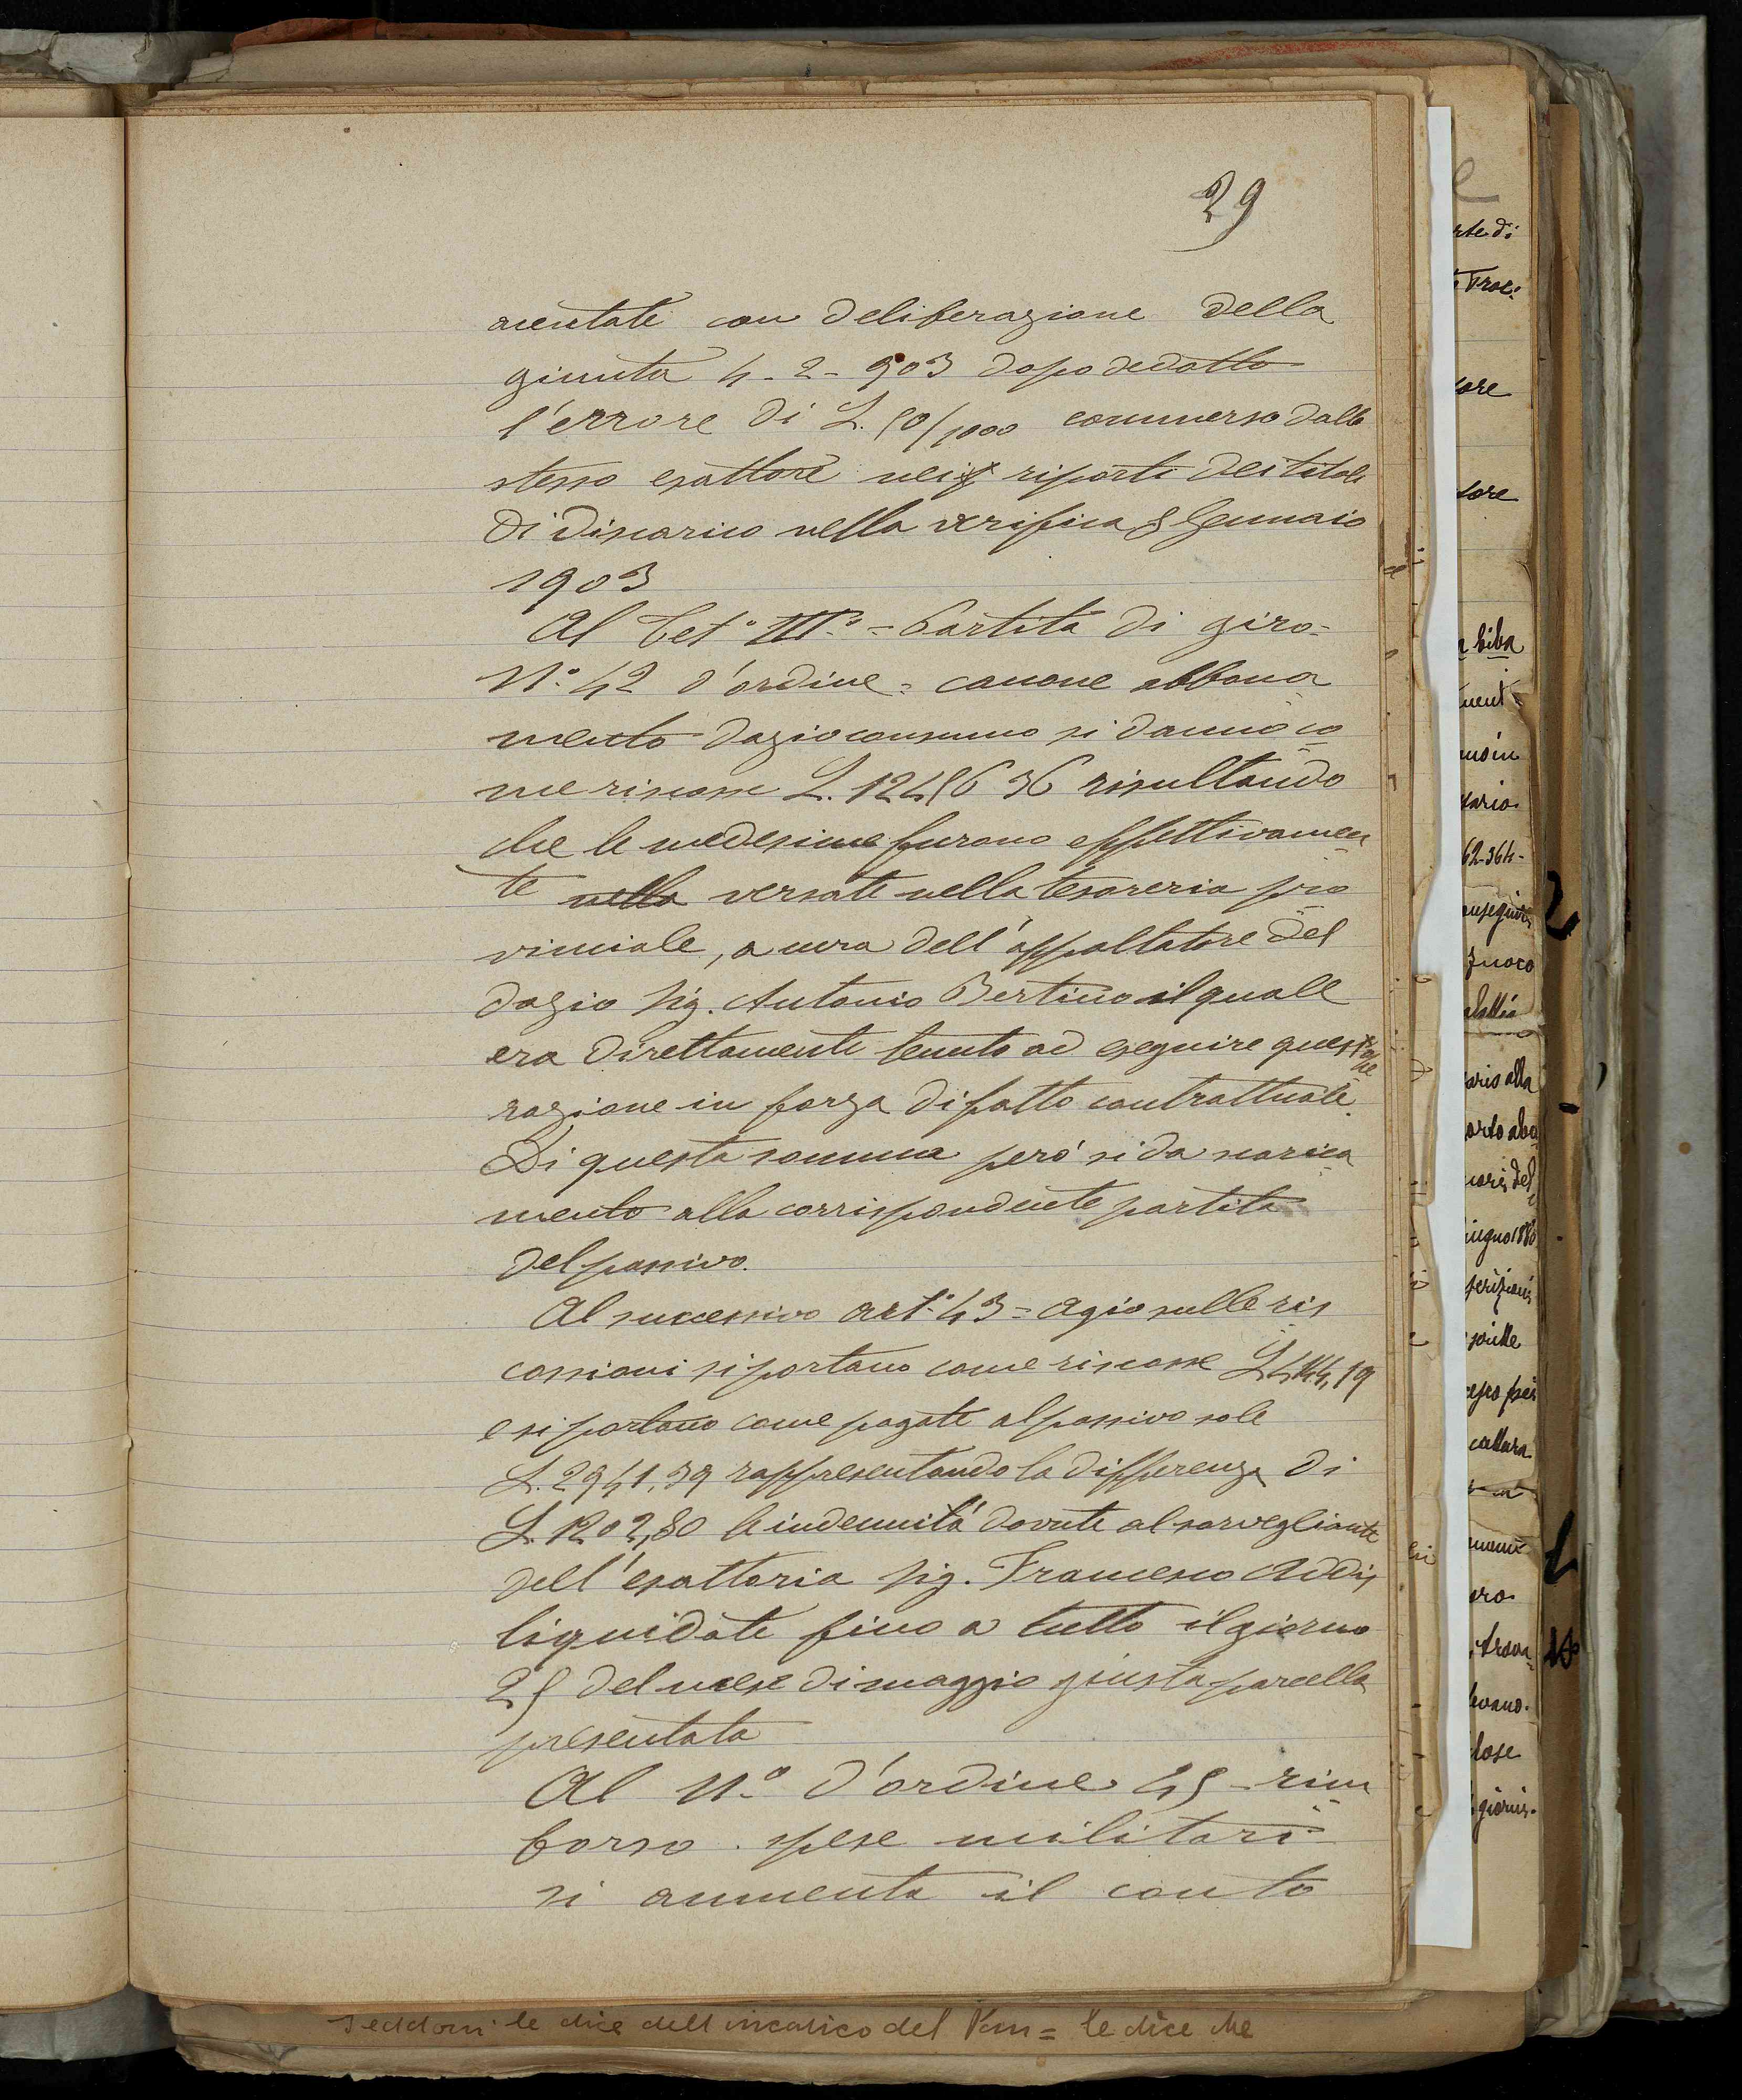 29
acentate con deliberazione della
giunta 4-2-903 dopo dedotto
l'errore di L. 50/1000 commerso dallo
stesso esattore nei riporti dei titoli
di discarico nella verifica 8 Gennaio
1903
Al Tit° III° = Partita di giro =
N° 42 d'ordine = canone abbona
mento dazio consumo si danno co
me riscosse L. 12456 36 risultando
che le medesime furono effettivamen
te nella versate nella tesoreria pro
vinciale, a cura dell'appaltatore del
dazio Sig. Antonio Bertino il quale
era direttamente tenuto ad eseguire quest'ope
razione in forza di patto contrattuale.
Di questa somma però si da scarica
mento alla corrispondente partita
del passivo.
Al successivo art° 43 = agio sulle ris
cossioni si portano come riscosse L 4144,19
e si portano come pagate al passivo sole
L. 2941,39 rappresentando la differenza di
L. 1202,80 le indennità dovute al sorvegliante
dell'esattoria Sig. Francesco Addis
liquidate fino a tutto il giorno
25 del mese di maggio giusta parcella
presentata
Al N° d'ordine 45 - rim
borso spese militari
si aumenta il conto
rte di
tore
tore
ment
ario
62-364-
fuoco
aris alla
iugno 1880
cattara
uro
trova
levano.
lose
giorni.
le dice dell'incarico del = le dice che